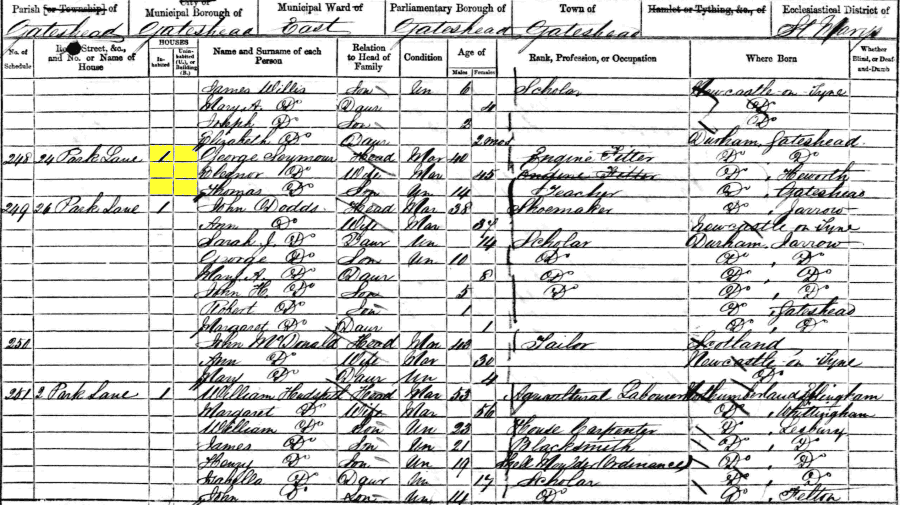 Parish [or Township] of Gateshead
City or Municipal Borough of Gateshead
Municipal Ward of East
Parliamentary Borough of Gateshead
Town of Gateshead
Hamlet or Tything, &c., of
Ecclesiastical District of St Marys
No. of Schedule
Road, Street, &c., and No. or Name of House
HOUSES
Inhabited
Uninhabited (U.), or Building (B.)
Name and Surname of each Person
Relation to Head of Family
Condition
Age of
Males
Females
Rank, Profession, or Occupation
Where Born
Whether Blind, or Deaf-and-Dumb
James Willis Son Un 6 Scholar Newcastle-on-Tyne
Mary A. Do Daur 4 Do
Joseph Do Son 2 Do
Elizabeth Do Daur 2 mos Durham, Gateshead
248 24 Park Lane 1 George Seymour Head Mar 40 Engine Fitter Do Do
Eleanor Do Wife Mar 45 Engine Fitter Do, Heworth
Thomas Do Son Un 14 Teacher Do, Gateshead
249 26 Park Lane 1 John Dodds Head Mar 38 Shoemaker Do, Jarrow
Ann Do Wife Mar 37 Newcastle on Tyne
Sarah J. Do Daur Un 14 Scholar Durham, Jarrow
George Do Son Un 10 Do Do, Do
Mary A. Do Daur 8 Do Do, Do
John H. Do Son 5 Do Do, Do
Robert Do Son 1 Do, Gateshead
Margaret Do Daur 1 Do, Do
250 John McDonald Head Mar 43 Tailor Scotland
Ann Do Wife Mar 30 Newcastle-on-Tyne
Mary Do Daur Un 4 Do
251 2 Park Lane 1 William Head Mar 53 Agricultural Labourer Northumberland,
Margaret Do Wife Mar 56 Do, Whittingham
William Do Son Un 23 House Carpenter Do, Lesbury
James Do Son Un 21 Blacksmith Do, Do
Henry Do Son Un 19 Moulder (Ordinance) Do, Do
Isabella Do Daur Un 17 Scholar Do, Do
John Do Son Un 14 Do Do, Felton